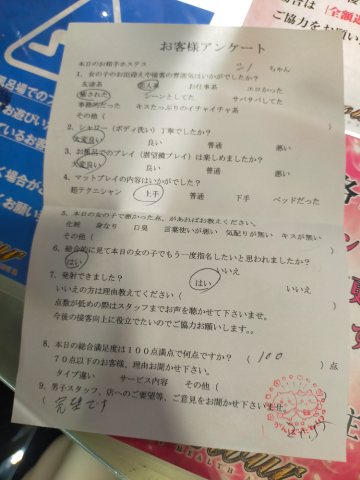 お客様アンケート
本日のお相手ホステス ちゃん
1. 女の子のお出迎えや接客の雰囲気はいかがでしたか?
友達系 恋人系 お仕事系 エロかった
癒された シーンとしてた サバサバしてた
事務的だった キスたっぷりのイチャイチャ系
その他( )
2. シャワー(ボディ洗い)丁寧でしたか?
大変良い 良い 普通 悪い
3. お風呂でのプレイ(潜望鏡プレイ)は楽しめましたか?
大変良い 良い 普通 悪い
4. マットプレイの内容はいかがでした?
超テクニシャン 上手 普通 下手 ベッドだった
5. 本日の女の子で悪かった点、があればお教えください。
化粧 身なり 口臭 言葉使いが悪い 気配りが無い キスが無い
その他( )
6. 総合的に見て本日の女の子でもう一度指名したいと思われましたか?
はい いいえ
7. 発射できました? はい いいえ
いいえの方は理由教えてください( )
点数が低めの際はスタッフまでお声を聴かせて下さいませ。
今後の接客向上に役立てたいのでご協力お願いします。
8. 本日の総合満足度は100点満点で何点ですか?( 100 )点
70点以下のお客様、理由お聞かせ下さい。
タイプ違い サービス内容 その他( )
9. 男子スタッフ、店へのご要望等、ご意見をお聞かせ下さいませ
( 完璧です